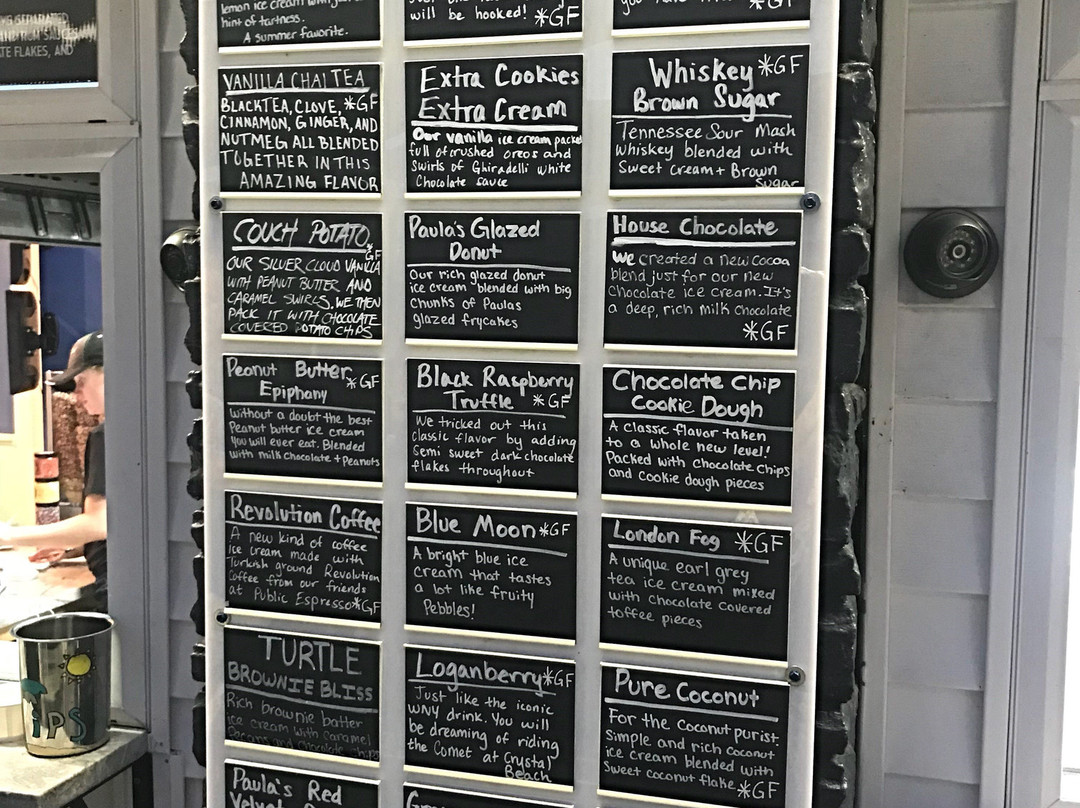 AND RUM SAUCE
TE FLAKES, AND
lemon ice cream with just a
hint of tartness.
A summer favorite.
will be hooked! *GF
*GF
VANILLA CHAI TEA
BLACK TEA, CLOVE, *GF
CINNAMON, GINGER, AND
NUTMEG ALL BLENDED
TOGETHER IN THIS
AMAZING FLAVOR
Extra Cookies
Extra Cream
Our vanilla ice cream packed
full of crushed oreos and
Swirls of Ghiradelli white
Chocolate sauce
Whiskey *GF
Brown Sugar
Tennessee Sour Mash
Whiskey blended with
Sweet Cream + Brown
Sugar
COUCH POTATO
*GF
OUR SILVER CLOUD VANILLA
WITH PEANUT BUTTER AND
CARAMEL SWIRLS. WE THEN
PACK IT WITH CHOCOLATE
COVERED POTATO CHIPS
Paula's Glazed
Donut
Our rich glazed donut
ice cream blended with big
chunks of Paulas
glazed frycakes
House Chocolate
We created a new cocoa
blend just for our new
Chocolate ice cream. It's
a deep, rich milk chocolate
*GF
Peanut Butter
Epiphany *GF
Without a doubt the best
Peanut butter ice cream
you will ever eat. Blended
with milk chocolate + peanuts
Black Raspberry
Truffle *GF
We tricked out this
classic flavor by adding
Semi sweet dark chocolate
flakes throughout
Chocolate Chip
Cookie Dough
A classic flavor taken
to a whole new level!
Packed with chocolate chips
and cookie dough pieces
Revolution Coffee
A new kind of coffee
Ice cream made with
Turkish ground Revolution
Coffee from our friends
at Public Espresso *GF
Blue Moon *GF
A bright blue ice
cream that tastes
a lot like fruity
Pebbles!
London Fog *GF
A unique earl grey
tea ice cream mixed
with chocolate covered
toffee pieces
TURTLE
BROWNIE BLISS
Rich brownie batter
ice cream with caramel
Pecans and chocolate chips
Loganberry *GF
Just like the iconic
WNY drink. You will
be dreaming of riding
the Comet at Crystal
Beach
Pure Coconut
For the coconut purist.
Simple and rich coconut
ice cream blended with
Sweet coconut flake *GF
Paula's Red
TiPS